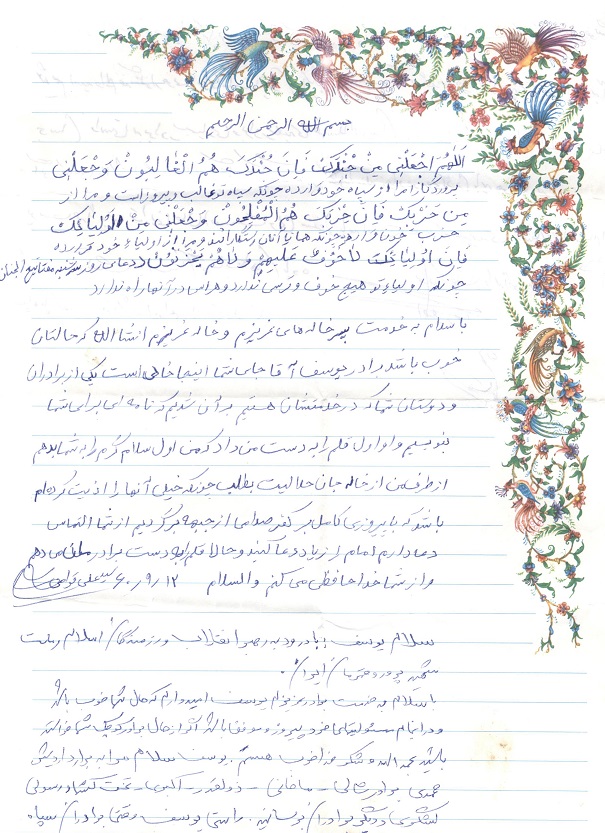 بسم الله الرحمن الرحیم
اللهم اجعلنی من جندک فان جندک هم الغالبون وجعلنی
پروردگارا مرا از سپاه خود قرار ده چونکه سپاه تو غالب و پیروز است و مرا از
من حزبک فان حزبک هم المفلحون وجعلنی من اولیاءک
حزب خود قرار ده چونکه همانا آنان رستگارانند و مرا از اولیاء خود قرار ده
فان اولیاءک لا خوف علیهم ولا هم یحزنون دعای روز سه شنبه مفاتیح الجنان
چونکه اولیاء تو هیچ خوف و ترسی ندارد و هراس در آنها راه ندارد
با سلام به خدمت پسر خاله های عزیزم و خاله عزیزم انشاالله که حالتان
خوب باشد برادر یوسف آقا جای شما اینجا خالی است یکی از برادران
و دوستان شما که در خدمتشان هستیم بر آن شدیم که نامه ای برای شما
بنویسیم و او اول قلم را به دست من داد که من اول سلام گرم را به شما بدهم
از طرف من از خاله جان حلالیت بطلب چونکه خیلی آنها را اذیت کرده ام
باشد که با پیروزی کامل بر کفر صدامی از جبهه برگردیم از شما التماس
دعا دارم امام را زیاد دعا کنید و حالا قلم را به دست برادر می دهم
و از شما خداحافظی می کنم والسلام ۶۰/۹/۱۲
سلام یوسف با درود به رهبر انقلاب و رزمندگان اسلام
با سلام به خدمت برادر عزیزم یوسف امیدوارم که حال شما خوب باشد
و در انجام مسئولیتهای خود پیروز و موفق باشید اگر از حال برادر کوچک شما خواسته
باشید بحمدالله و شکر خدا خوب هستم. یوسف سلام مرا به برادر
دیگر برادران برسانید. راستی یوسف وقتی برادران سپاه